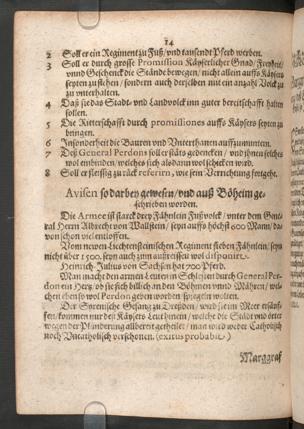 14
2 Soll er ein Regiment zu Fuß/ vnd tausendt Pferd werben.
3 Soll er durch grosse Promission Käyserlicher Gnad/ Freyheit/
vnnd Geschenck die Stände bewegen/ nicht allein auffs Käysers
seyten zu stehen/ sondern auch derselben mit ein anzahl Volck zu
zu vnterhalten.
4 Daß sie das Stadt- vnd Landvolck inn guter bereitschafft halten
sollen.
5 Die Ritterschafft durch promissiones auffs Käysers seyten zu
bringen.
6 Insonderheit die Bauren vnd Vnterthanen auffzumunten.
7 Deß General Perdons soll er stäts gedencken/ vnd ihnen solches
wol einbinden/ welches sich alsdann wol schicken wird.
8 Soll er fleissig zu rück referirn, wie sein Verrichtung fortgehe.
Avisen so darbey gewesen/ vnd auß Böheim ge-
schrieben worden.
Die Armee ist starck drey Fähnlein Fußvolck/ vnter dem Gene-
ral Herrn Albrecht von Wallstein/ seyn auffs höchst 600 Mann/ da-
von schon viel entloffen.
Vom newen Liechtensteinischen Regiment sieben Fähnlein/ seyn
nicht über 1500. seyn auch zum außreissen wol disponirt.
Heinrich Julius von Sachsen hat 700 Pferd.
Man macht den armen Leuten in Schlesien durch General Per-
don ein Hertz/ ob sie sich billich an den Böhmen vnnd Mähren/ wel-
chen eben so wol Perdon geben worden/ spiegeln wolten.
Der Syrenische Gesang zu Dreßden/ wird sie im Meer ersäuf-
fen/ kommen nur deß Käysers Leut hinein/ welche die Städt vnd örter
wegen der Plünderung allbereit getheilet/ man wird weder Catholisch
noch Vncatholisch verschonen. (exitus probabit.)
Marggraf